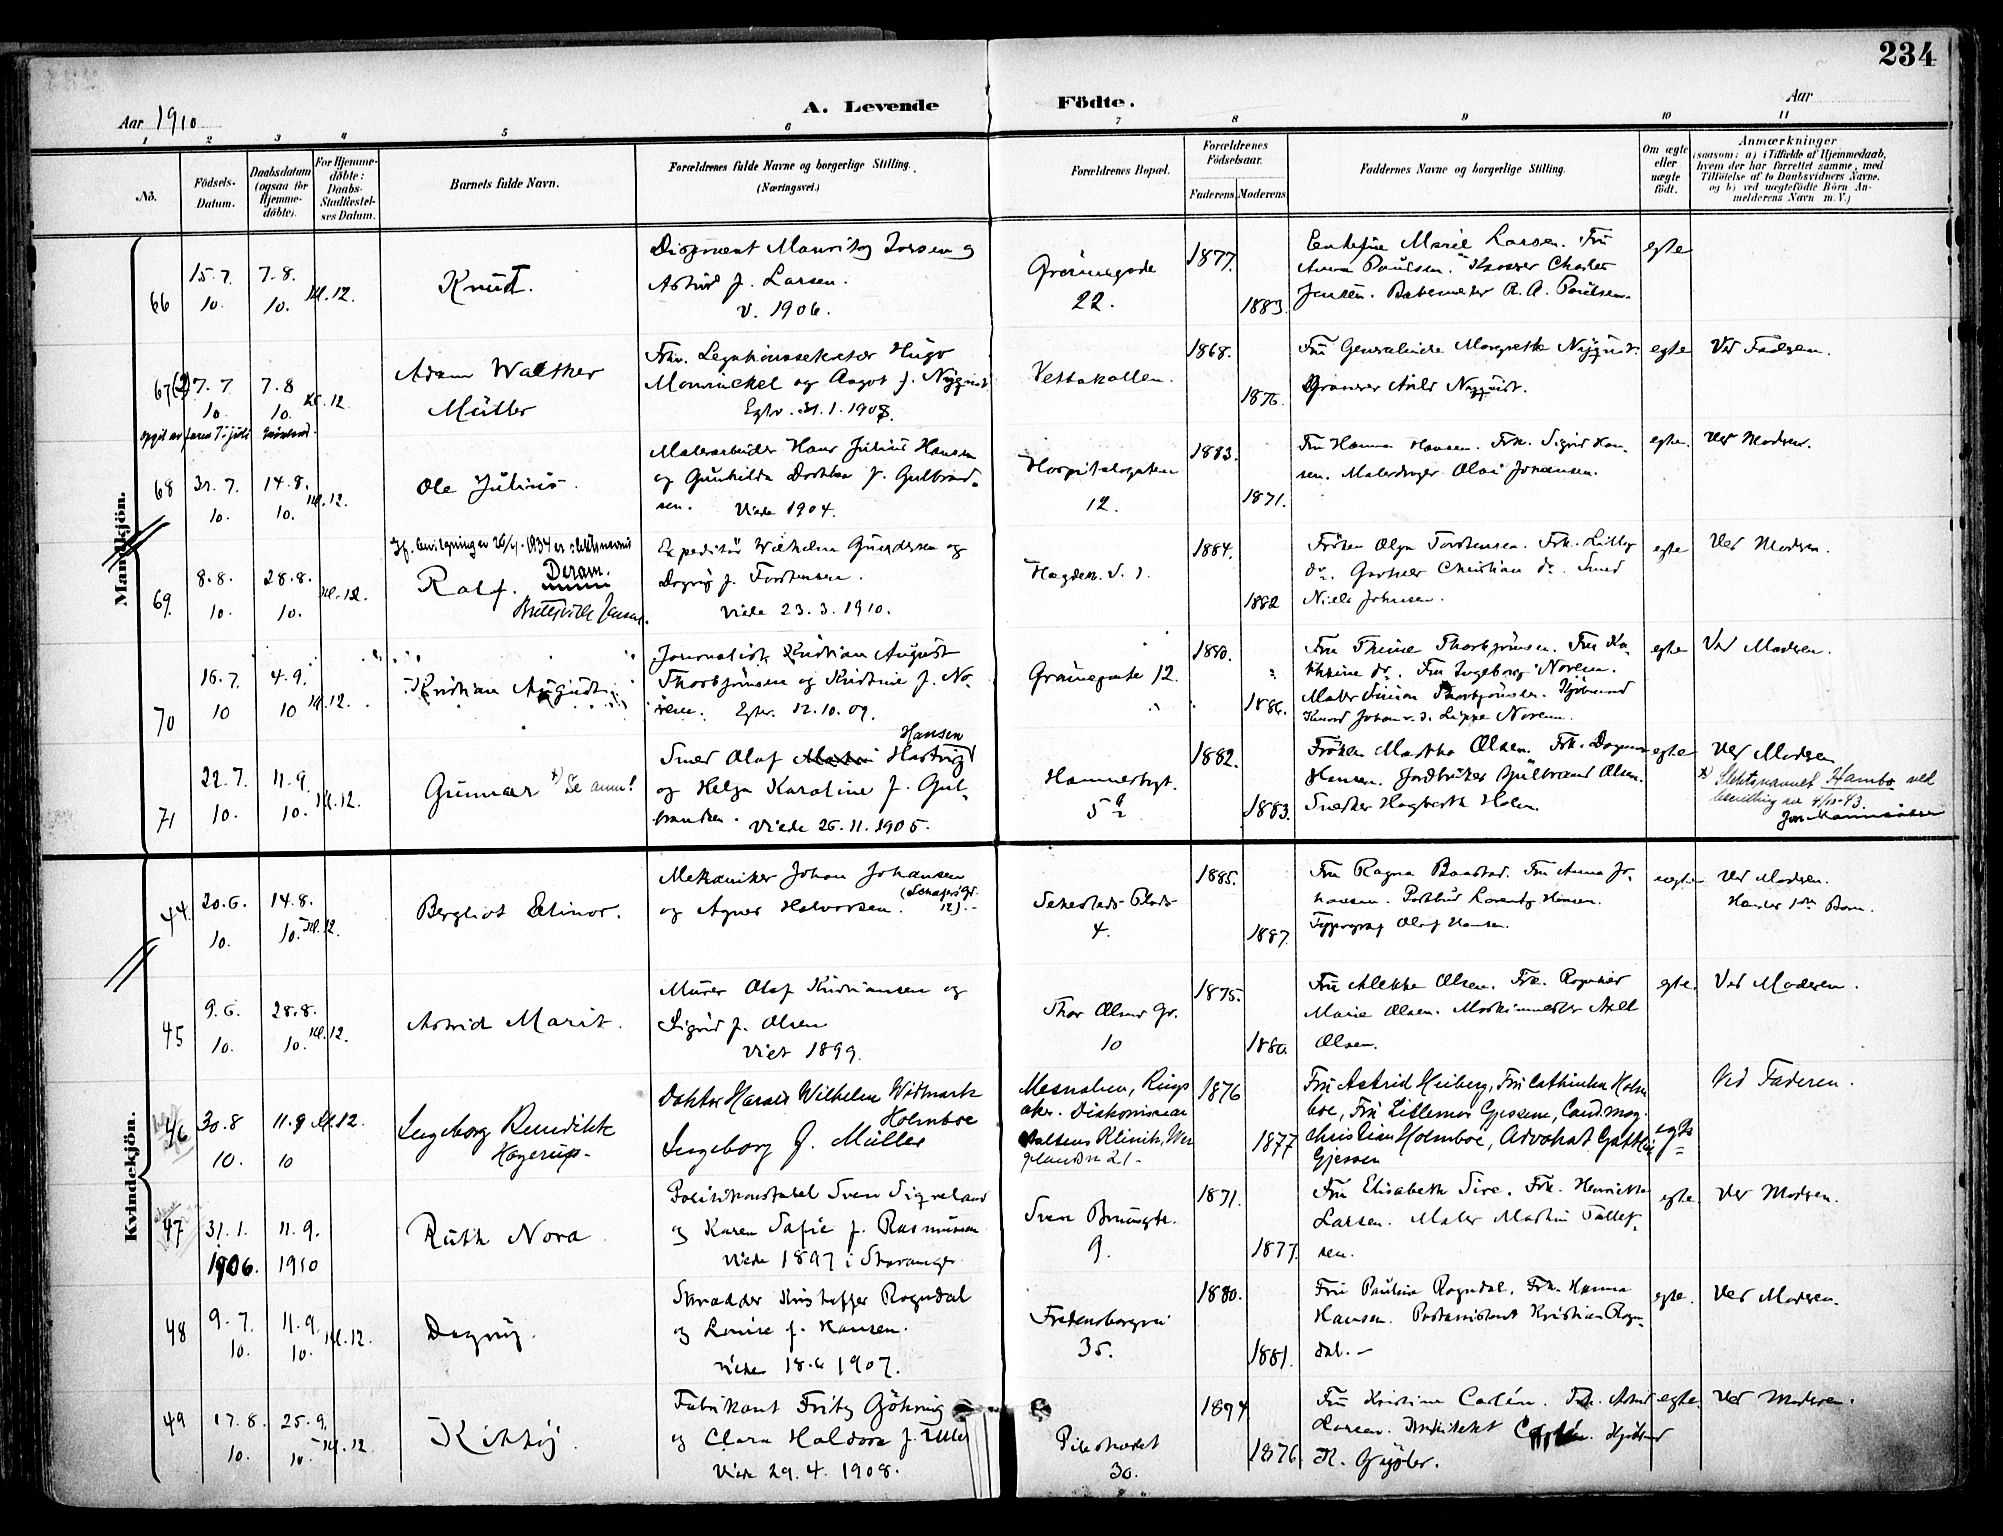 234
A. Levende Födte.
Aar 1910
Aar
1 2 3 4 5 6 7 8 9 10 11
No.
Födsels-Datum.
Daabsdatum (ogsaa för Hjemmedöbte).
For Hjemmedöbte: Daabs-Stadfæstelses Datum.
Barnets fulde Navn.
Forældrenes fulde Navne og borgerlige Stilling. (Næringsvei.)
Forældrenes Bopæl.
Forældrenes Födselsaar.
Faderens Moderens
Faddernes Navne og borgerlige Stilling.
Om ægte eller uægte født.
Anmærkninger
(saasom: a) i Tilfælde af Hjemmedaab,
hvem der har forrettet samme, med
Tilföielse af to Daabsvidners Navne.
og b) ved uægtefödte Börn An-
melderens Navn m. V.)
Mandkjön.
66 15.7. 10. 7.8. 10. Kl. 12. Knut.
Disponent Mauritz Larsen og
Astrid f. Larsen.
V. 1906.
Grönnegade
22.
1877. 1883.
Enkefru Marie Larsen. Fru
Anna Paulsen. Kasserer Charles
Jensen. R. A. Paulsen.
egte
67 7.7 10. 7.8 10. Kl. 12.
Adam Walther
Müller
Frhv. Legationssekretær Hugo
og Aagot f. Nyquist
Egtv. 31.1.1907.
Vettakollen.
1868. 1876.
Fru Generalinde Margrethe Nyquist.
Arild Nyquist.
egte
Ved Faderen.
68 31.7. 10. 14.8. 10. Kl. 12.
Ole Julius.
Malerarbeider Hans Julius Hansen
og Gunhilda Dorthea f. Gulbrand-
sen. Viede 1904.
Hospitalsgaten
12.
1883. 1871.
Fru Hanna Hansen. Frk. Sigrid Han-
sen. Olai Johansen.
egte.
Ved Moderen.
69. 8.8. 10. 28.8. 10. Kl. 12.
Rolf. Deram.
Expeditör Wilhelm Gundersen og
Dagny f. Torstensen.
Viede 23.3.1910.
Hægdeh. v. 1.
1884. 1882
Fröken Olga Torstensen. Frk. Lilly
do. Gartner Christian do. Smed
Niels Johnsen.
egte
Ved Moderen.
70 16.7. 10 4.9. 10 Kl. 12.
Kristian August
Journalist Kristian August
Thorbjörnsen og Kristine f. No-
rem. Egtv. 12.10.09.
Grönnegate 12.
1880. 1886.
Fru Thine Thorbjörnsen. Fru Ka-
thrine do. Fru Ingeborg Norem.
Maler Simon Thorbjörnsen. Kjöbmand
Knud Johan v. d. Lippe Norem.
egte
Ved Moderen.
71 22.7. 10. 11.9. 10. Kl. 12.
Gunnar x) Se anm!
Hansen
Smed Olaf Hartvig
og Helga Karoline f. Gul-
brandsen. Viede 26.11.1905.
Hammersbgt.
5 a
1882. 1883.
Fröken Martha Olsen. Frk. Dagmar
Hansen. Jordbruker Gulbrand Olsen.
Snedker Hagbarth Holm.
egte
Ved Moderen
x) Slektsnavnet Hambo ved
bevilling av 4/10-43.
Kvindekjön.
44 20.6. 10. 14.8. 10. Kl. 12.
Bergliot Elinor.
Mekaniker Johan Johansen
og Agnes Halvorsen. (Schæffersgt. 12).-
Sehesteds Plads
4.
1885. 1887.
Fru Ragna Baastad. Fru Anna Jo-
hansen. Postbud Lorentz Hansen.
Typograf Olaf Hansen.
uegte
Ved Moderen.
Hendes 1ste Barn.
45 9.6. 10. 28.8. 10. Kl. 12.
Astrid Marit.
Murer Olaf Kristiansen og
Sigrid f. Olsen
Viet 1899.
Thor Olsens Gt.
10
1875. 1880.
Fru Alette Olsen. Frk. Ragnhild
Marie Olsen. Maskinmester Axel
Olsen.
egte.
Ved Moderen.
46 30.8 10. 11.9 10 Kl. 12.
Ingeborg Benedikte
Hagerup-
Doktor Harald Wilhelm Widmark
Holmboe
Ingeborg f. Müller
Mesnalien, Rings-
aker. Diakonissean-
staltens Klinik, Wer-
gelandsv. 21-
1876 1877
Fru Astrid Heiberg, Fru Cathinka Holm-
boe, Fru Lillemor Gjessen, Cand. mag.
Christian Holmboe, Advokat
Gjessen
egte
Ved Faderen.
47 31.1. 1906. 11.9. 1910
Ruth Nora
Politikonstabel Sven Sigveland
og Karen Sofie f. Rasmussen
Viede 1897 i Stavanger
Sven Brunsgt.
9.
1871. 1877.
Fru Elisabeth Sire. Frk. Henriette
Larsen. Maler Martin Tollef-
sen.
egte.
Ved Moderen.
48 9.7. 10. 11.9. 10. Kl. 12.
Dagny.
Skrædder Kristoffer Rogndal
og Louise f. Hansen.
Viede 18.6 1907.
Fredensborgvei
35.
1880. 1881.
Fru Pauline Rogndal. Frk. Hanna
Hansen. Postassistent Kristian Rogn-
dal.-
egte.
Ved Moderen.
49 17.8. 10. 25.9. 10. Kl. 12.
Fabrikant Fritz Göhring
og Clara Haldora f.
Viede 29.4.1908.
Pilestrædet
30.
1874 1876
Fru Kristine Carlén. Frk. Astrid
Larsen. Arkitekt Carlén.
egte.
Ved Moderen.